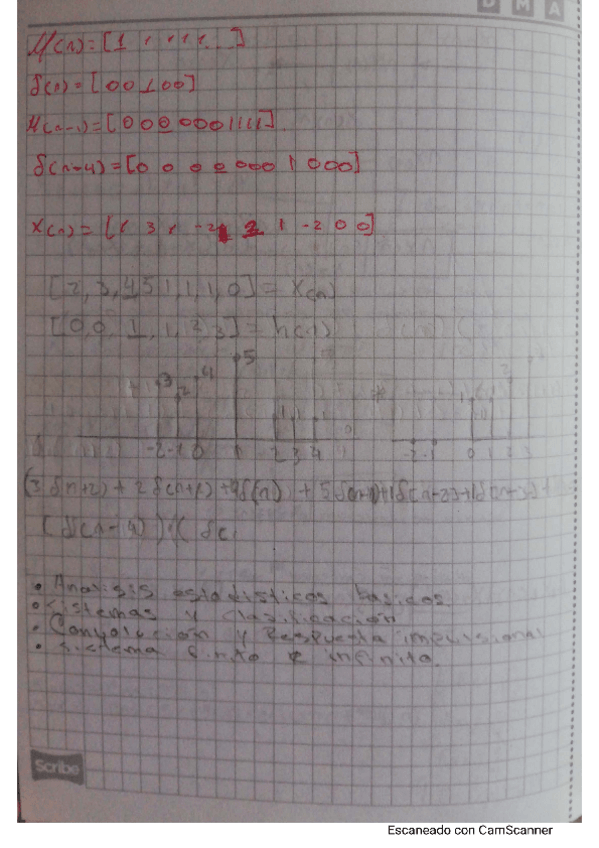 D M A
μ(n)=[1 , , , , ]
δ(n)=[00100]
μ(n-4)=[000000011111]
δ(n-4)=[0 0 0 0 000 1 000]
X(n)=[1 3 1 -2 2 1 -2 0 0]
[2,3,4,5 1,1,1,0]=X(n)
[0,0,1,1,2,3]=h(n)
3 2 4 5
-2 -1 0 1 2 3 4
-2 -1 0 1 2 3
(3 δ(n+2) + 2 δ(n+1) +4δ(n) + 5
(δ(n-4) )*( δ(
• Analisis estadisticos basicos
• Sistemas y clasificación
• Convolución y Respuesta impulsional
• Sistema finito e infinito.
Scribe
Escaneado con CamScanner